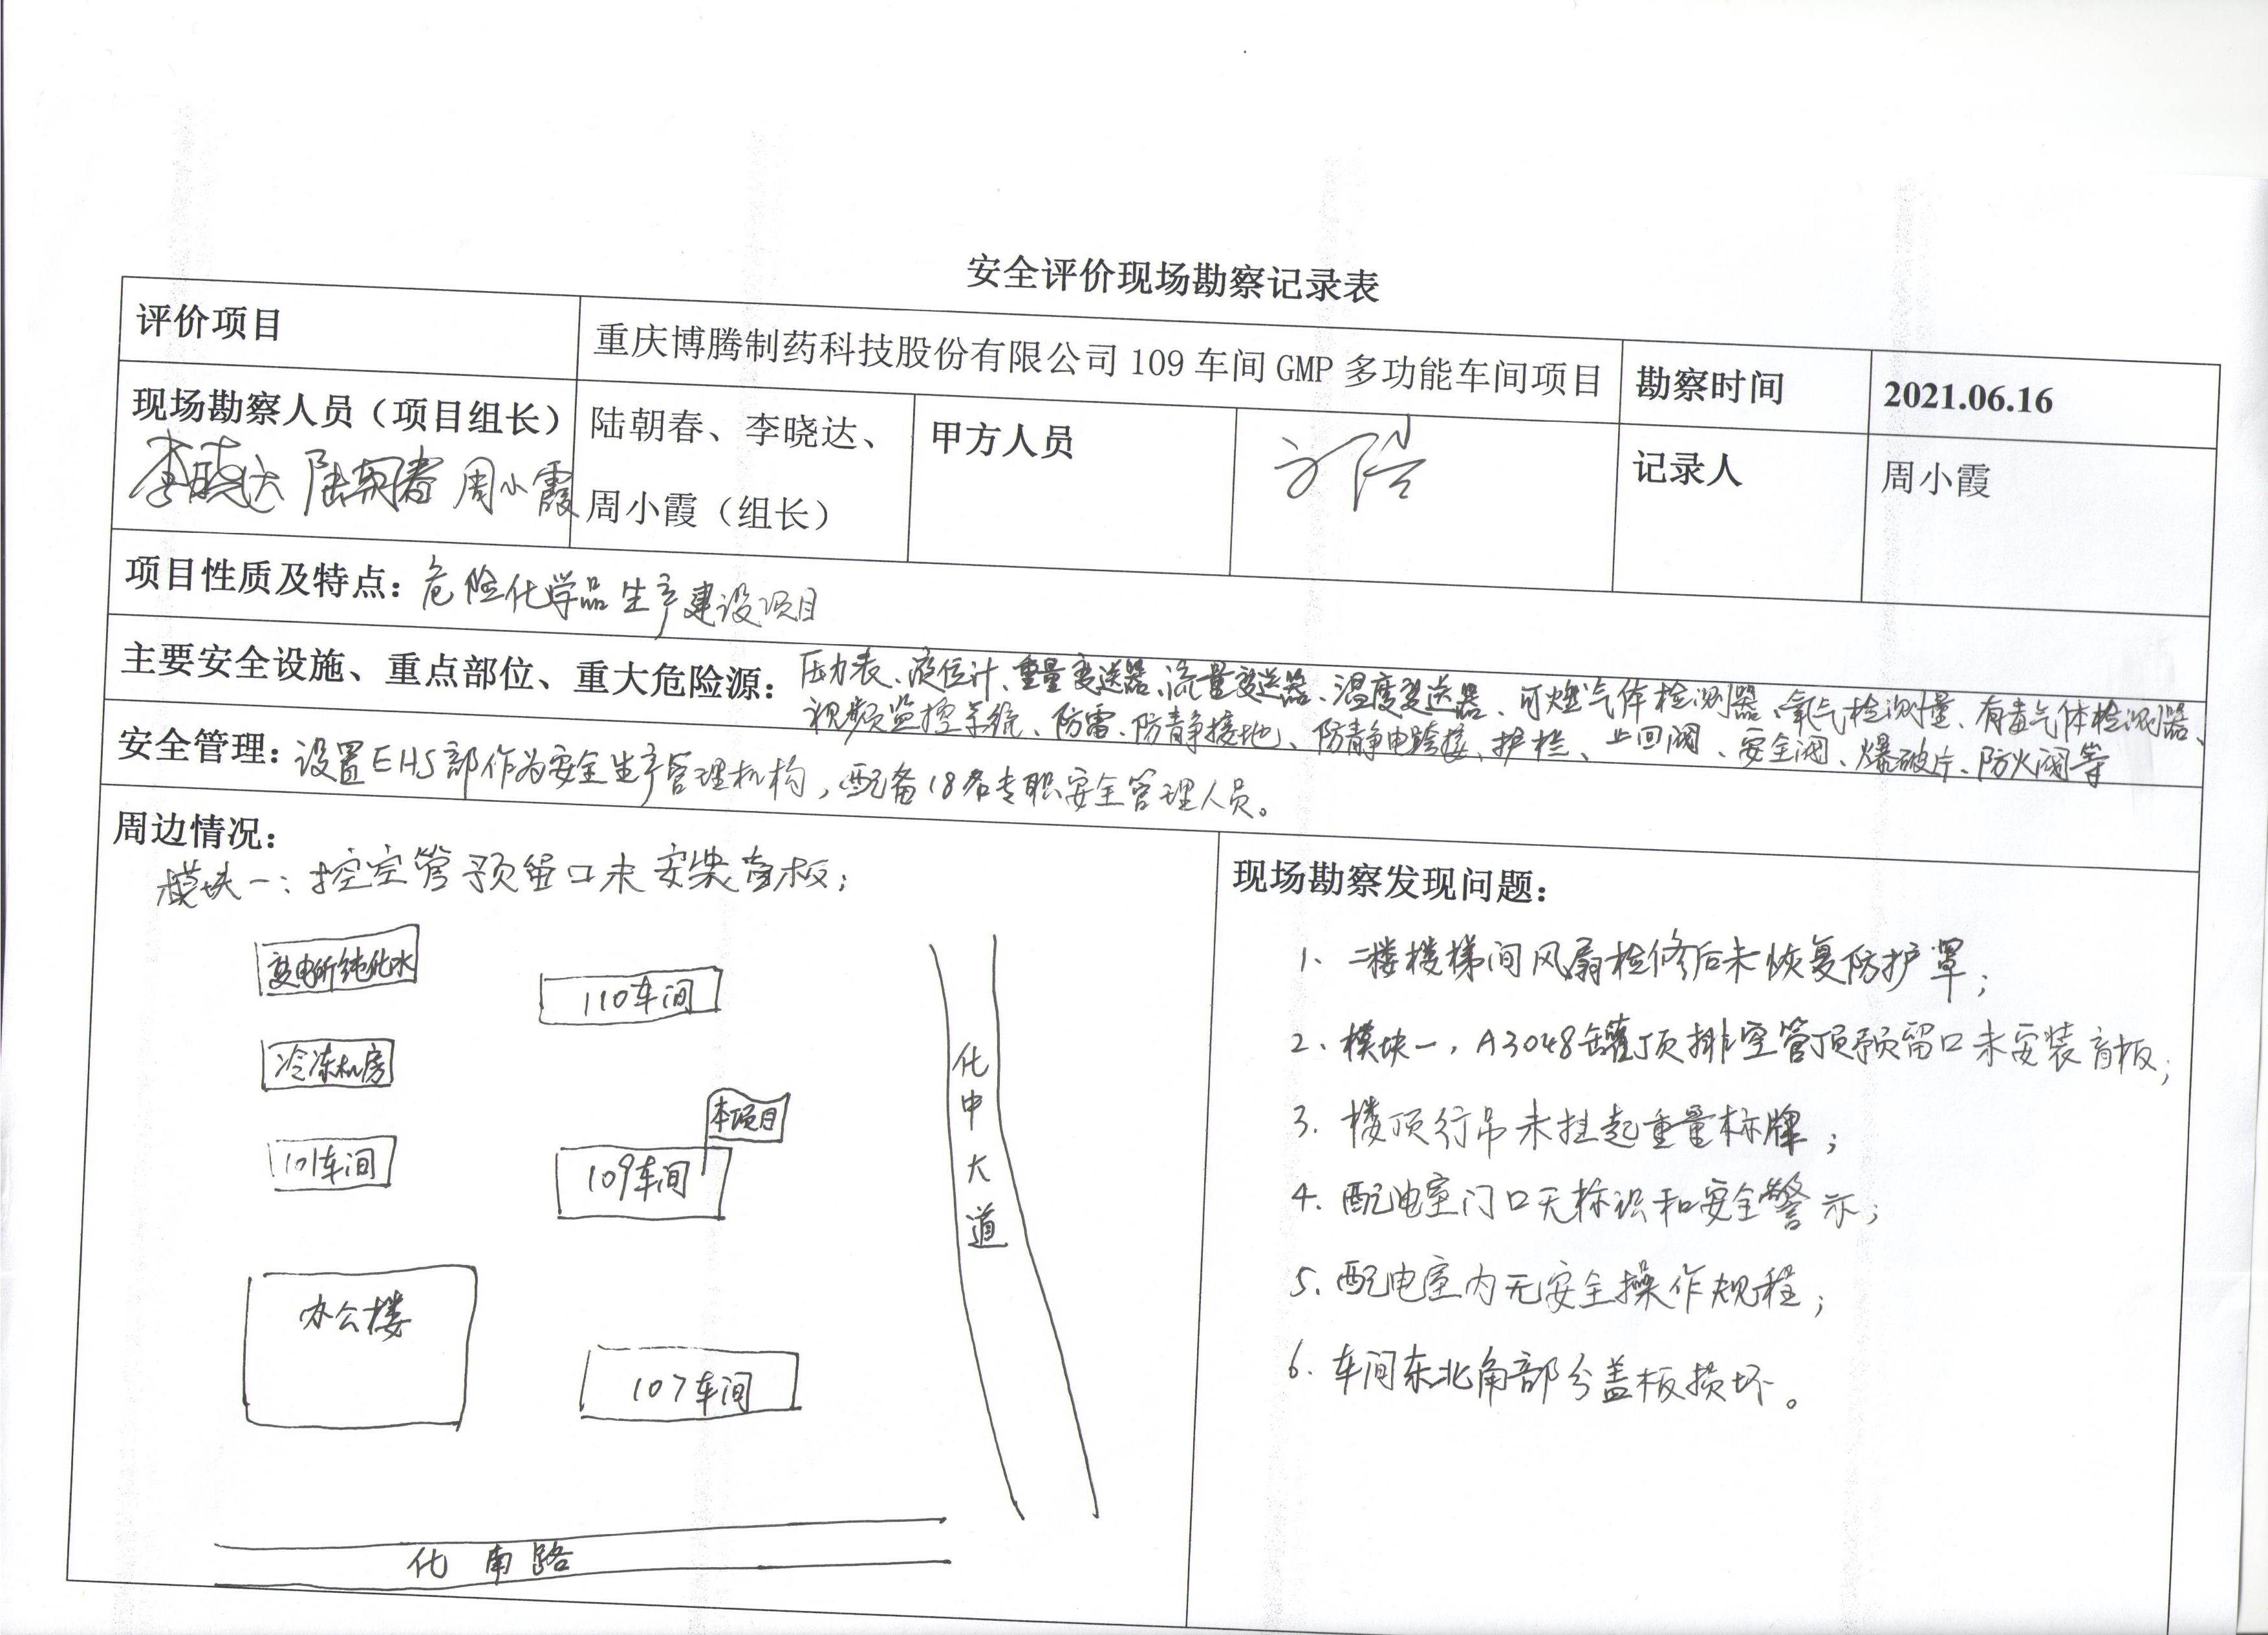 安全评价现场勘察记录表
评价项目
重庆博腾制药科技股份有限公司109车间GMP多功能车间项目
勘察时间
2021.06.16
现场勘察人员（项目组长）
李晓达 陆朝春 周小霞
陆朝春、李晓达、
周小霞（组长）
甲方人员
记录人
周小霞
项目性质及特点：危险化学品生产建设项目
主要安全设施、重点部位、重大危险源：压力表、液位计、重量变送器、流量变送器、温度变送器、可燃气体检测器、氧气检测量、有毒气体检测器、
视频监控系统、防雷、防静接地、防静电跨接、护栏、止回阀、安全阀、爆破片、防火阀等
安全管理：设置EHS部作为安全生产管理机构，配备18名专职安全管理人员。
周边情况：
模块一：控空管预留口未安装盲板；
变电所纯化水
110车间
冷冻机房
本项目
101车间
109车间
办公楼
107车间
化中大道
化南路
现场勘察发现问题：
1、二楼楼梯间风扇检修后未恢复防护罩；
2、模块一，A3048罐顶排空管顶预留口未安装盲板；
3. 楼顶行吊未挂起重量标牌；
4. 配电室门口无标识和安全警示；
5. 配电室内无安全操作规程；
6. 车间东北角部分盖板损坏。